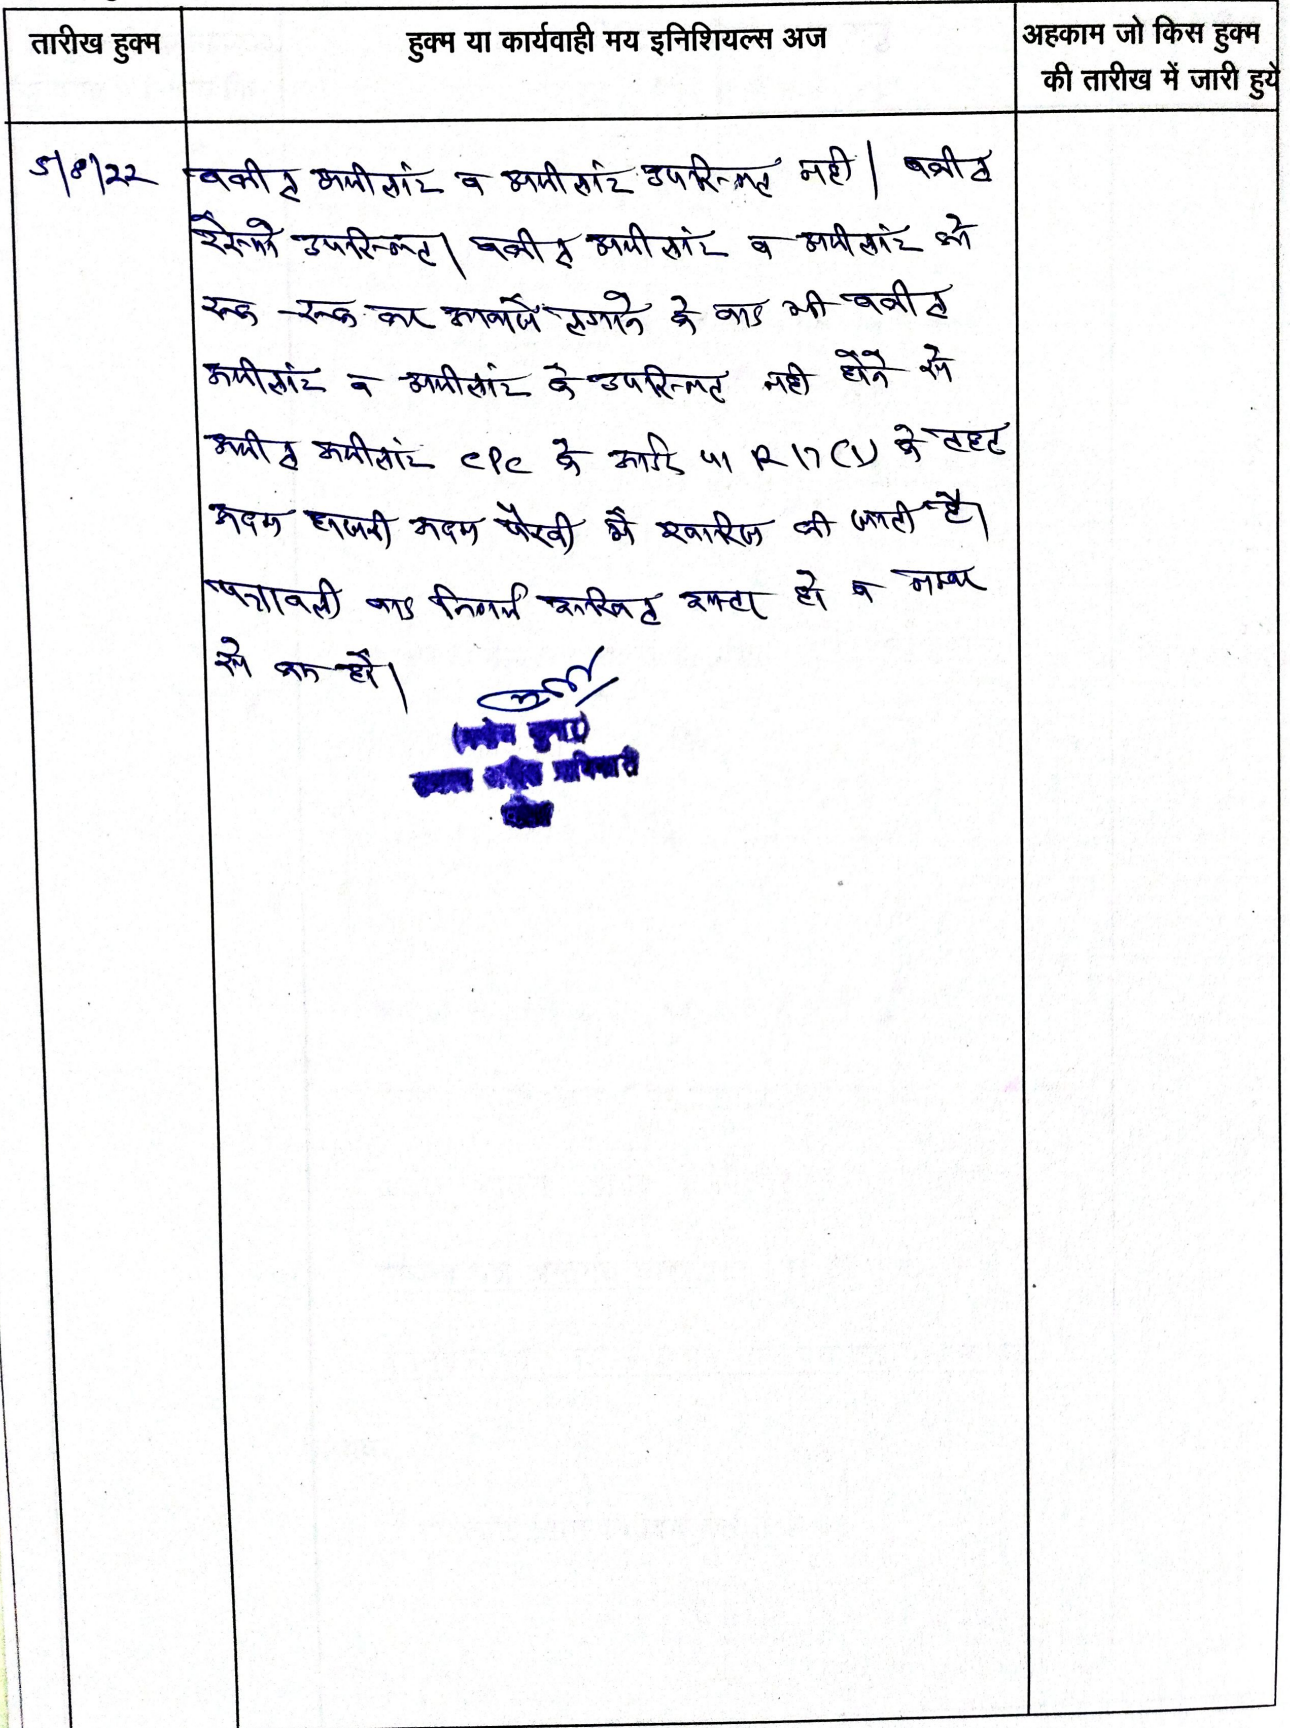 तारीख हुक्म
हुक्म या कार्यवाही मय इनिशियल्स अज
अहकाम जो किस हुक्म
की तारीख में जारी हुये
5/8/22
वकील अपीलांट व अपीलांट उपस्थित नही। वकील
रेस्पो उपस्थित। वकील अपीलांट व अपीलांट को
रूक-रूक कर आवाजें लगाने के बाद भी वकील
अपीलांट व अपीलांट के उपस्थित नही होने से
अपील अपीलांट CPC के आर्डर 41 R 17 (1) के तहत
अदम हाजरी अदम पैरवी में खारिज की जाती है।
पत्रावली बाद निर्णय दाखिल दफ्तर हो व नम्बर
से कम हो।
कुमार)
अपील